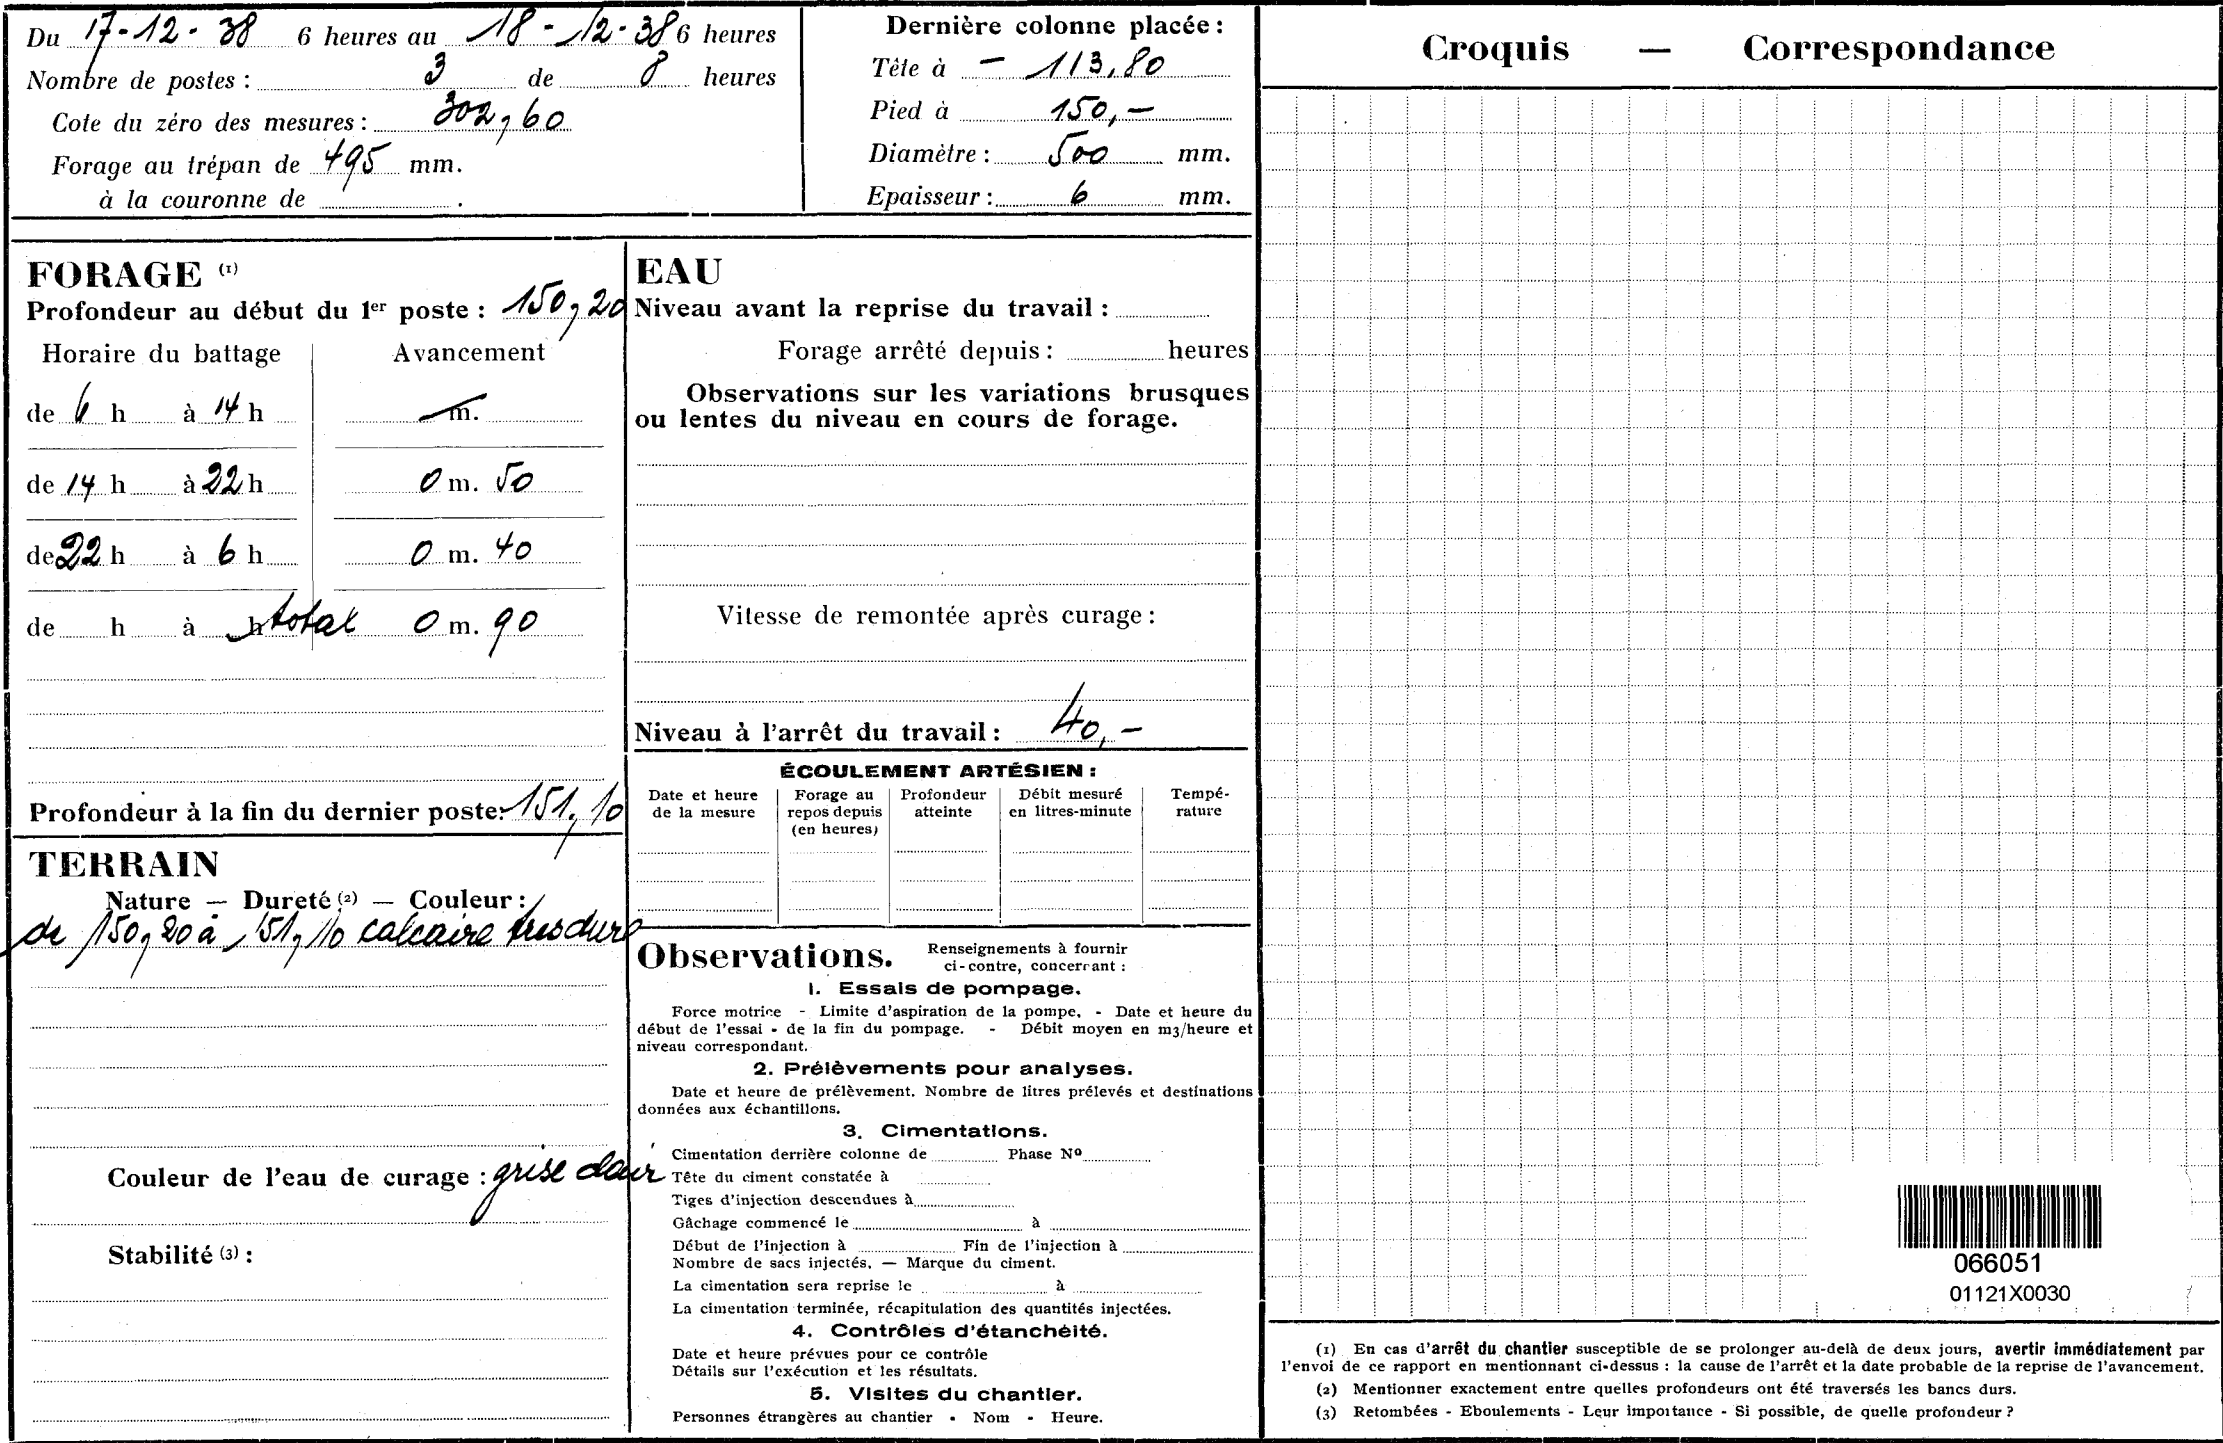 Du 17-12-38 6 heures au 18-12-38 6 heures
Nombre de postes : 3 de 8 heures
Cote du zéro des mesures : 302,60
Forage au trépan de 495 mm.
à la couronne de .
Dernière colonne placée :
Tête à - 113,80
Pied à 150,-
Diamètre : 500 mm.
Epaisseur : 6 mm.
FORAGE (1)
Profondeur au début du 1er poste : 150,20
Horaire du battage Avancement
de 6 h à 14 h m.
de 14 h à 22 h 0 m. 50
de 22 h à 6 h 0 m. 40
de h à h total 0 m. 90
Profondeur à la fin du dernier poste: 151,10
TERRAIN
Nature — Dureté (2) — Couleur :
de 150,20 à 151,10 calcaire tres dure
Couleur de l'eau de curage : grise clair
Stabilité (3) :
EAU
Niveau avant la reprise du travail :
Forage arrêté depuis : heures
Observations sur les variations brusques
ou lentes du niveau en cours de forage.
Vitesse de remontée après curage :
Niveau à l'arrêt du travail : 40,-
ÉCOULEMENT ARTÉSIEN :
Date et heure de la mesure
Forage au repos depuis (en heures)
Profondeur atteinte
Débit mesuré en litres-minute
Tempé-rature
Observations. Renseignements à fournir
ci-contre, concerrant :
1. Essais de pompage.
Force motrice - Limite d'aspiration de la pompe. - Date et heure du
début de l'essai - de la fin du pompage. - Débit moyen en m3/heure et
niveau correspondant.
2. Prélèvements pour analyses.
Date et heure de prélèvement. Nombre de litres prélevés et destinations
données aux échantillons.
3. Cimentations.
Cimentation derrière colonne de Phase No
Tête du ciment constatée à
Tiges d'injection descendues à
Gâchage commencé le à
Début de l'injection à Fin de l'injection à
Nombre de sacs injectés. — Marque du ciment.
La cimentation sera reprise le à
La cimentation terminée, récapitulation des quantités injectées.
4. Contrôles d'étanchéité.
Date et heure prévues pour ce contrôle
Détails sur l'exécution et les résultats.
5. Visites du chantier.
Personnes étrangères au chantier - Nom - Heure.
Croquis — Correspondance
066051
01121X0030
(1) En cas d'arrêt du chantier susceptible de se prolonger au-delà de deux jours, avertir immédiatement par
l'envoi de ce rapport en mentionnant ci-dessus : la cause de l'arrêt et la date probable de la reprise de l'avancement.
(2) Mentionner exactement entre quelles profondeurs ont été traversés les bancs durs.
(3) Retombées - Eboulements - Leur importance - Si possible, de quelle profondeur ?